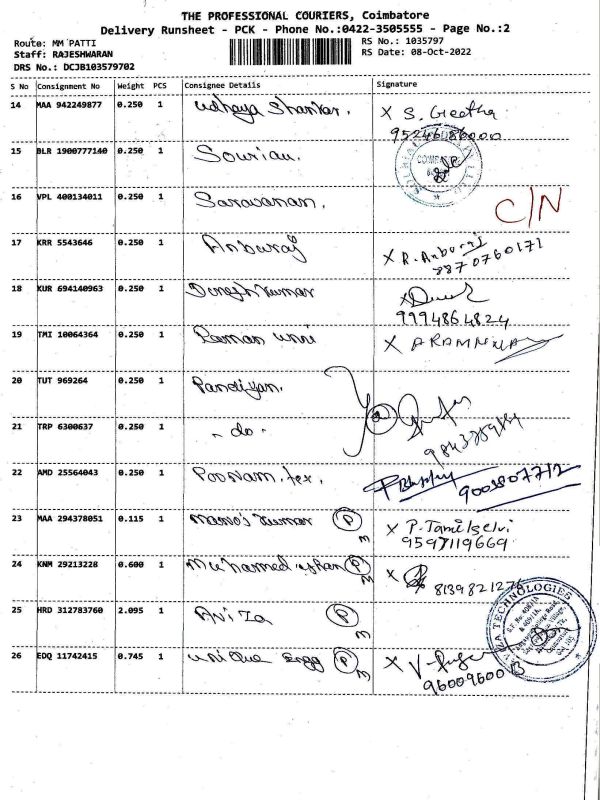 THE PROFESSIONAL COURIERS, Coimbatore
Delivery Runsheet - PCK - Phone No.:0422-3505555 - Page No.:2
Route: MM PATTI RS No.: 1035797
Staff: RAJESHWARAN RS Date: 08-Oct-2022
DRS No.: DCJB103579702
S No Consignment No Weight PCS Consignee Details Signature
14 MAA 942249877 0.250 1 Udhaya Shankar. X S. Geetha
9524686000
15 BLR 1900777140 0.250 1
16 VPL 400134011 0.250 1 Saravanan. C/N
17 KRR 5543646 0.250 1 Anburaj X R. Anburaj
8870760171
18 KUR 694140963 0.250 1 Dinesh Kumar X
9994864824
19 TMI 10064364 0.250 1 X
20 TUT 969264 0.250 1 Pandiyan.
21 TRP 6300637 0.250 1 - do -
22 AMD 25564043 0.250 1 Poonam. tex.
23 MAA 294378051 0.115 1 Manoj Kumar P X P. Tamilselvi
M 9597119669
24 KNM 29213228 0.600 1 Muhamed P X
M
25 HRD 312783760 2.095 1 P
M
TECHNOLOGIES
26 EDQ 11742415 0.745 1 Unique Engg P X
M